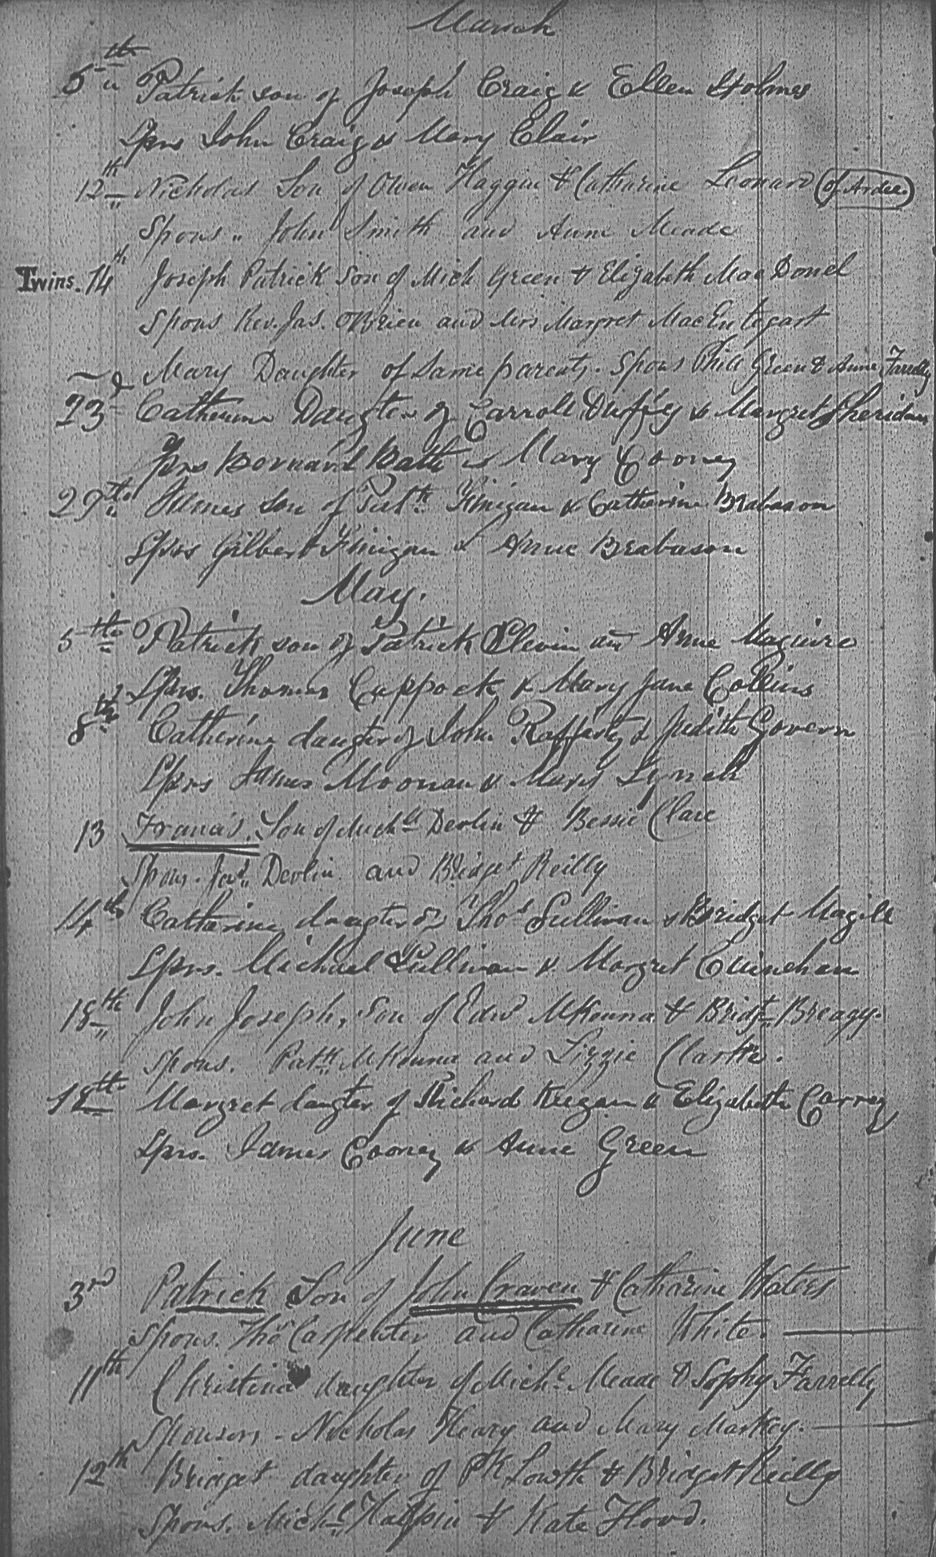 March
5th Patrick son of Joseph Craig & Ellen Holmes
Sprs John Craig & Mary Clair
12th Nicholas Son of Owen Haggin & Catharine Leonard (of Ardee)
Spons. John Smith and Anne Meade
Twins. 14th Joseph Patrick Son of Mich Green & Elizabeth MacDonel
Spons Rev. Jas. OBrien and Mrs Margret MacEntegart
& Mary Daughter of Same parents. Spons Phil Green & Anne Farrelly
23d Catherine Daugter of Carroll Duffy & Margret Sheridan
Sprs Bernard Bath & Mary Cooney
29th James son of Patk Finigan & Catherine Brabason
Sprs Gilbert Finigan & Anne Brabason
May.
5th Patrick son of Patrick Elevin an Anne Maguire
Sprs. Thomas Cuppock & Mary Jane Collins
8th Catherine daugter of John Rafferty & Judith Govern
Sprs James Moonan & Mary Lynch
13 Francis. Son of Michl Devlin & Bessie Clare
Spons. Devlin and Bridget Reilly
14th Catherine daugter of Thos Sullivan & Bridget Magill
Sprs. Michael Sullivan & Margret Quinehan
15th John Joseph, Son of Edwd McKenna & Bridt Breagy.
Spons. Patk McKenna and Lizzie Clarke.
18th Margret daugter of Richard Keegan & Elizabeth Carney
Sprs. James Cooney & Anne Green
June
3rd Patrick Son of John Craven & Catharine Waters
Spons. Thos Carpenter and Catharine White.
11th Christina daughter of Michl Meade & Sophy Farrelly
Sponsors - Nicholas Heary and Mary Markey.
12th Bridget daughter of Pk Lowth & Bridget Reilly
Spons. Michl Halpin & Kate Flood.